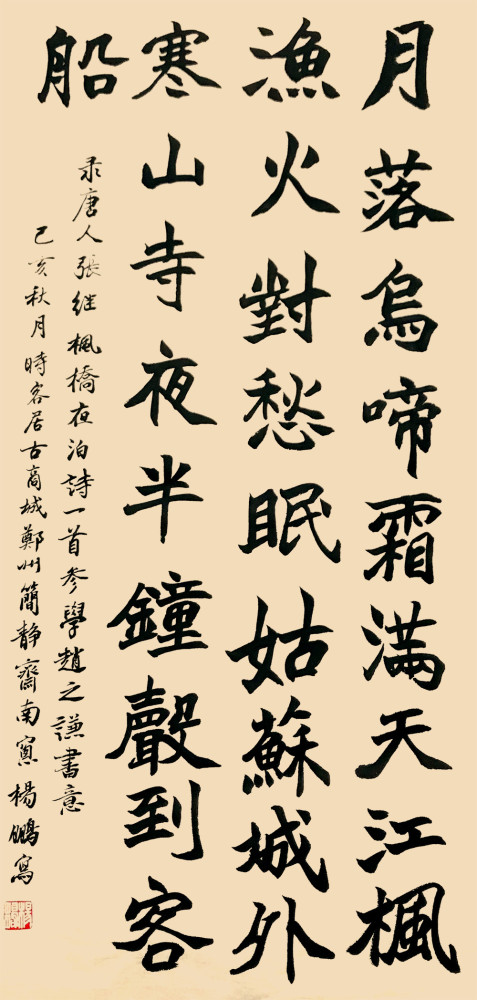 月落烏啼霜滿天江楓
漁火對愁眠姑蘇城外
寒山寺夜半鐘聲到客
船
录唐人張继楓橋夜泊詩一首参學趙之謙書意
己亥秋月時客居古商城鄭州簡静齋南窗楊鵬寫